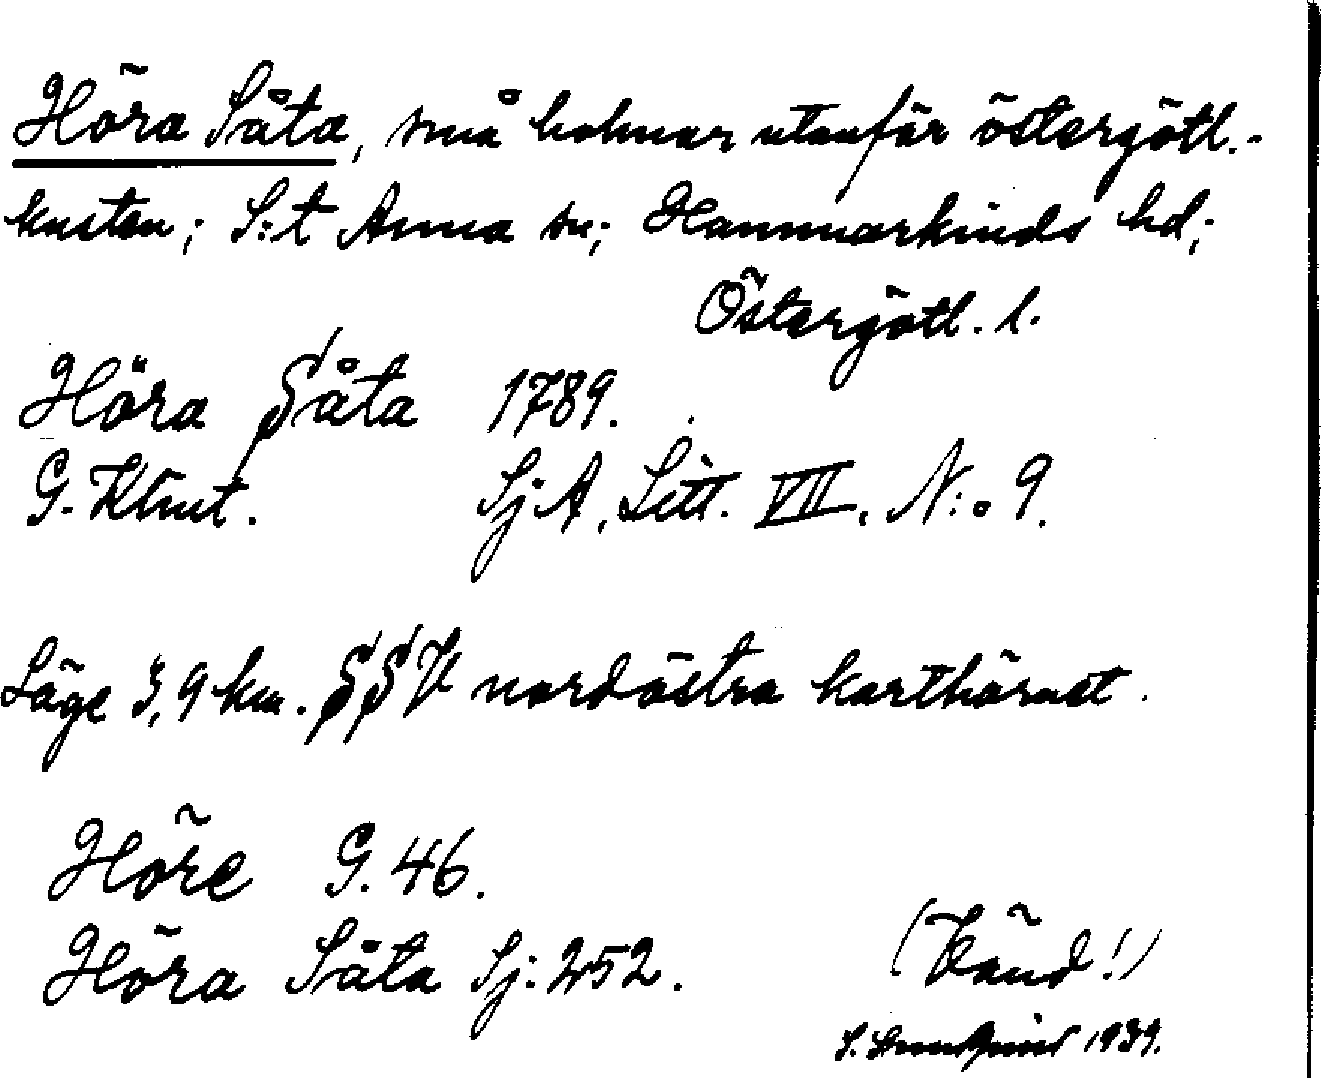 Höra Såta, små holmar utanför östergötl.-
kusten; S:t Anna sn; Hammarkinds hd;
Östergötl. l.
Höra Såta 1789.
G. Klint. Sj A, Litt. VII, N:o 9.
Läge 3,9 km. SSV nordöstra karthörnet.
Höre G. 46.
Höra Såta Sj: 252.
(Vänd!)
S. 1939.